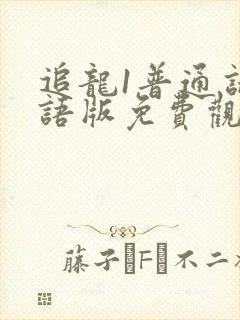 追龍1普通話
語版免費觀
藤子·F·不二雄